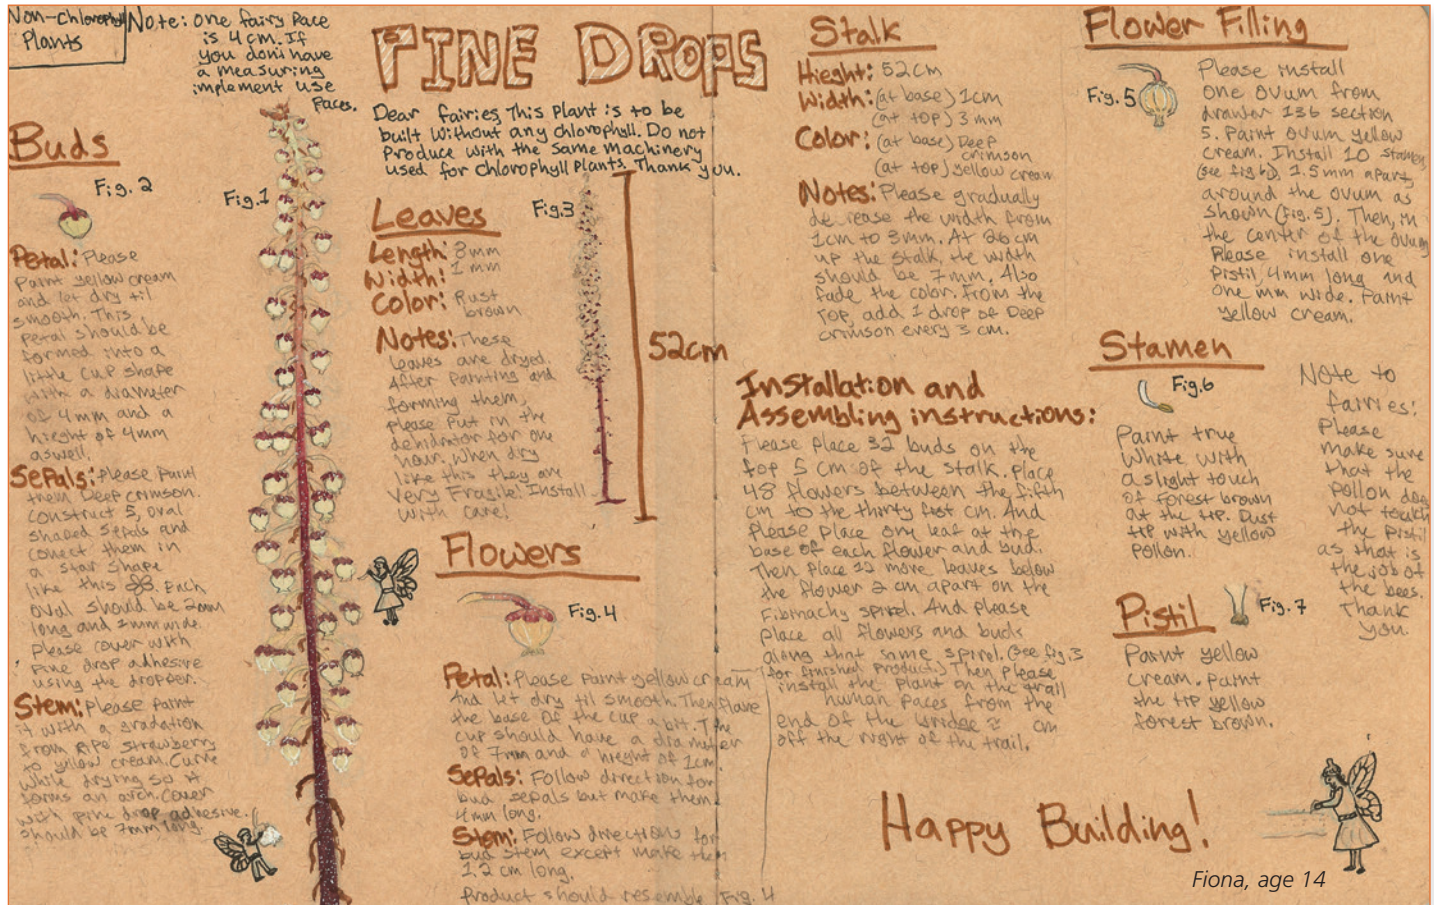 Non-Chlorophyll
Plants
Note: one fairy pace
is 4 cm. If
you don't have
a measuring
implement use
paces.
PINE DROPS
Dear fairies, This plant is to be
built without any chlorophyll. Do not
produce with the same machinery
used for chlorophyll plants. Thank you.
Buds
Fig. 2
Petal: Please
Paint yellow cream
and let dry til
smooth. This
petal should be
formed into a
little cup shape
with a diameter
of 4mm and a
hieght of 4mm
aswell.
Sepals: Please paint
them Deep crimson.
construct 5, oval
shaped sepals and
conect them in
a star shape
like this Each
oval should be 2mm
long and 1mm wide.
Please cover with
pine drop adhesive
using the dropper.
Stem: Please paint
it with a gradation
from Ripe strawberry
to yellow cream. Curve
while drying so it
forms an arch. Cover
with pine drop adhesive.
should be 7mm long.
Fig. 1
Leaves
Length: 8mm
Width: 1mm
Color: Rust
brown
Notes: These
leaves are dryed.
After painting and
forming them,
please put in the
dehidrator for one
hour. When dry
like this they are
very Fragile! Install
with care!
Fig. 3
52cm
Flowers
Fig. 4
Petal: Please paint yellow cream
And let dry til smooth. Then flare
the base of the cup a bit. The
cup should have a diameter
of 7mm and a hieght of 1cm.
Sepals: Follow direction for
bud sepals but make them
4mm long.
Stem: Follow directions for
bud stem except make them
1.2 cm long.
Product should resemble Fig. 4
Stalk
Hieght: 52cm
Width: (at base) 1cm
(at top) 3mm
Color: (at base) Deep
crimson
(at top) yellow cream
Notes: Please gradually
decrease the width from
1cm to 3mm. At 26cm
up the stalk, the width
should be 7mm. Also
fade the color. From the
top, add 1 drop of Deep
crimson every 3 cm.
Installation and
Assembling instructions:
Please place 32 buds on the
top 5 cm of the stalk. Place
48 flowers between the fifth
cm to the thirty fist cm. And
please place one leaf at the
base of each flower and bud.
Then place 12 more leaves below
the flower 2 cm apart on the
Fibinachy spirel. And please
place all flowers and buds
along that same spirel. (see fig. 3
for finished product.) Then please
install the plant on the trail
human paces from the
end of the bridge 2 cm
off the right of the trail.
Flower Filling
Fig. 5
Please install
one ovum from
drawer 136 section
5. Paint ovum yellow
cream. Install 10 stamen,
(see fig 6), 1.5mm apart,
around the ovum as
shown (Fig. 5). Then, in
the center of the ovum
Please install one
Pistil, 4mm long and
one mm wide. Paint
yellow cream.
Stamen
Fig. 6
Paint true
white with
a slight touch
of forest brown
at the tip. Dust
tip with yellow
pollon.
Note to
fairies:
Please
make sure
that the
pollon does
not touch
the pistil
as that is
the job of
the bees.
Thank
you.
Pistil
Fig. 7
Paint yellow
cream. Paint
the tip yellow
forest brown.
Happy Building!
Fiona, age 14